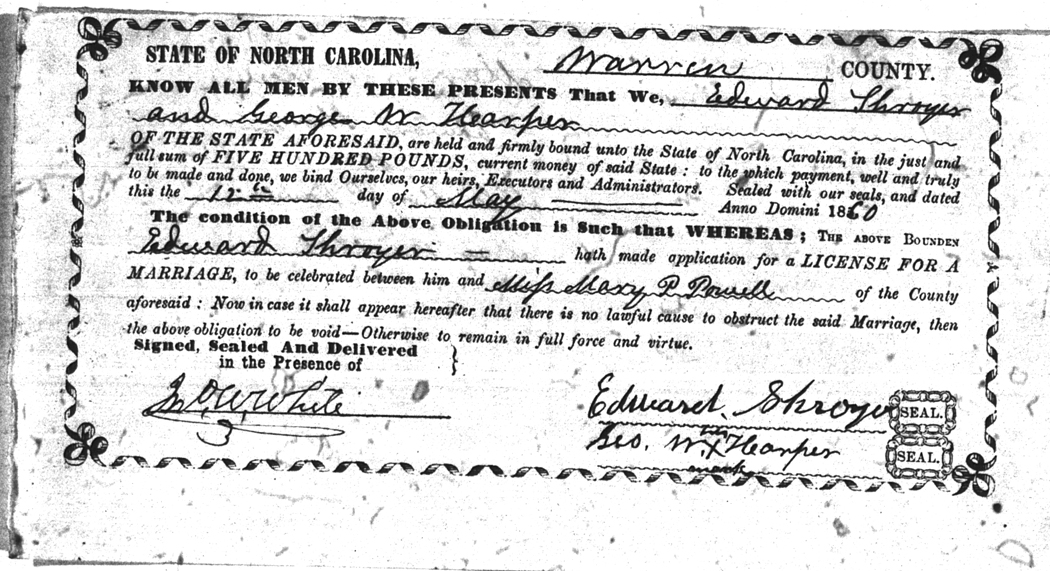 STATE OF NORTH CAROLINA, Warren COUNTY.
KNOW ALL MEN BY THESE PRESENTS That We, Edward Shroyer
and George W Hearper
OF THE STATE AFORESAID, are held and firmly bound unto the State of North Carolina, in the just and
full sum of FIVE HUNDRED POUNDS, current money of said State : to the which payment, well and truly
to be made and done, we bind Ourselves, our heirs, Executors and Administrators. Sealed with our seals, and dated
this the 12th day of May Anno Domini 1860
The condition of the Above Obligation is Such that WHEREAS ; THE ABOVE BOUNDEN
Edward Shroyer hath made application for a LICENSE FOR A
MARRIAGE, to be celebrated between him and Miss Mary P Powell of the County
aforesaid : Now in case it shall appear hereafter that there is no lawful cause to obstruct the said Marriage, then
the above obligation to be void—Otherwise to remain in full force and virtue.
Signed, Sealed And Delivered
in the Presence of
Jno. W. White
Edward Shroyer SEAL.
Geo. W. his X Hearper SEAL.
mark